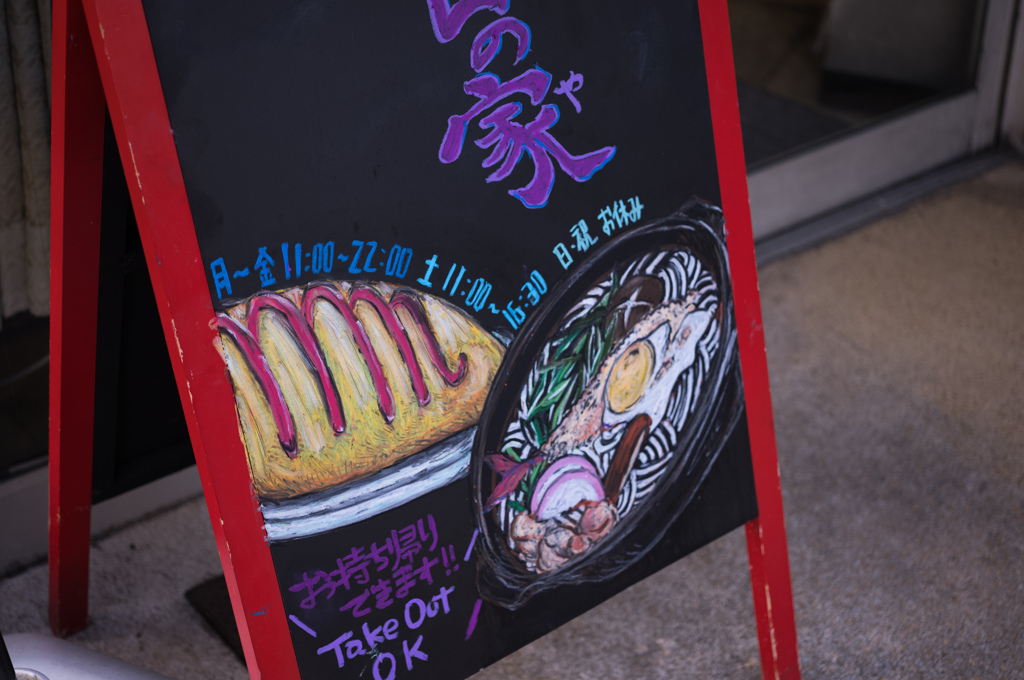 の家
や
月～金 11:00～22:00
土 11:00～16:30
日・祝 お休み
お持ち帰り
できます!!
Take Out
OK